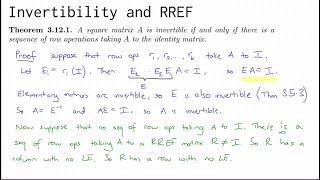 Invertibility and RREF
Theorem 3.12.1. A square matrix A is invertible if and only if there is a
sequence of row operations taking A to the identity matrix.
Proof suppose that row ops r₁, r₂, ..., rₖ take A to I.
Let Eᵢ = rᵢ(I). Then Eₖ ... E₂ E₁ A = I, so EA = I.
E
Elementary matrices are invertible, so E is also invertible (Thm 3.5.3)
So A = E⁻¹ and A⁻¹ = E.
Now suppose that no seq of row ops taking A to I. There is a
seq of row ops taking A to a RREF matrix R ≠ I. So R has a
column with no LE. So R has a row with no LE.